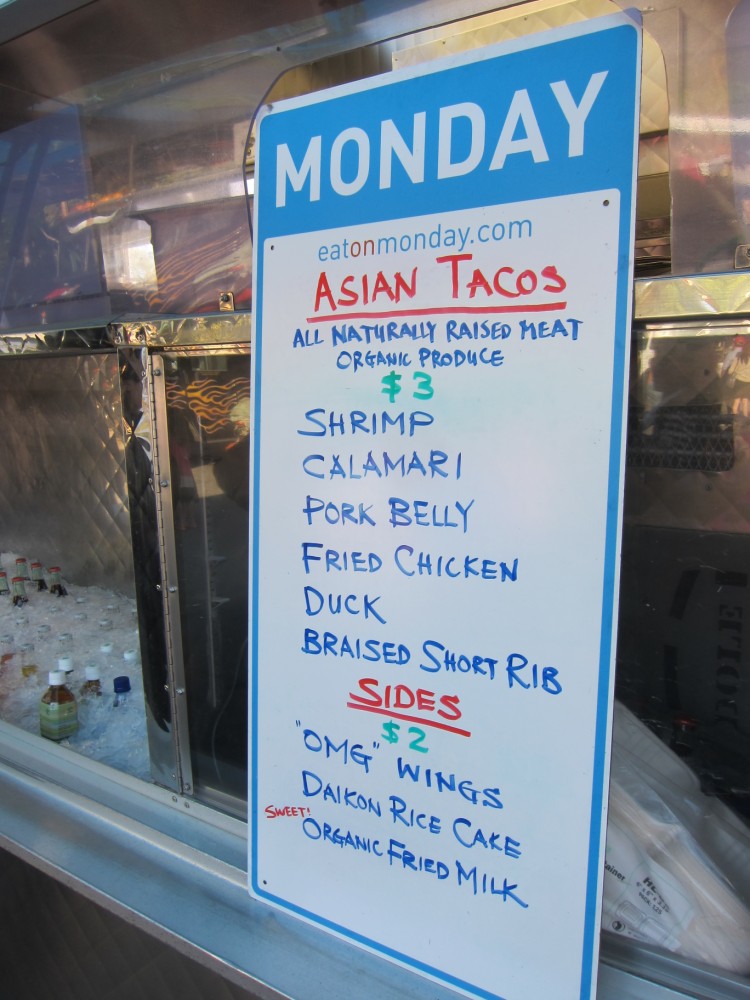 MONDAY
eatonmonday.com
ASIAN TACOS
ALL NATURALLY RAISED MEAT
ORGANIC PRODUCE
$3
SHRIMP
CALAMARI
PORK BELLY
FRIED CHICKEN
DUCK
BRAISED SHORT RIB
SIDES
$2
"OMG" WINGS
DAIKON RICE CAKE
SWEET! ORGANIC FRIED MILK